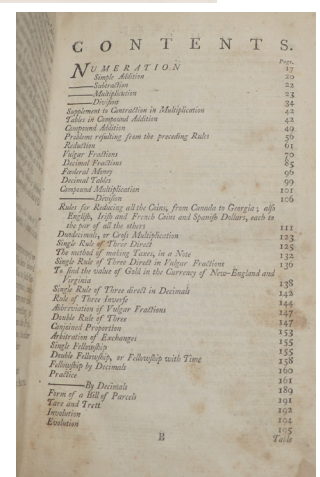 CONTENTS.
Page.
NUMERATION 17
Simple Addition 20
——Subtraction 22
——Multiplication 23
——Division 34
Supplement to Contraction in Multiplication 42
Tables in Compound Addition 42
Compound Addition 49
Problems resulting from the preceding Rules 56
Reduction 61
Vulgar Fractions 70
Decimal Fractions 85
Fœderal Money 96
Decimal Tables 99
Compound Multiplication 101
——Division 106
Rules for Reducing all the Coins, from Canada to Georgia; also
English, Irish and French Coins and Spanish Dollars, each to
the par of all the others 111
Duodecimals, or Cross Multiplication 123
Single Rule of Three Direct 125
The method of making Taxes, in a Note 132
Single Rule of Three Direct in Vulgar Fractions 136
To find the value of Gold in the Currency of New-England and
Virginia 138
Single Rule of Three direct in Decimals 142
Rule of Three Inverse 144
Abbreviation of Vulgar Fractions 147
Double Rule of Three 147
Conjoined Proportion 153
Arbitration of Exchanges 155
Single Fellowship 155
Double Fellowship, or Fellowship with Time 158
Fellowship by Decimals 160
Practice 161
——By Decimals 189
Form of a Bill of Parcels 191
Tare and Trett 192
Involution 194
Evolution 195
B
Table